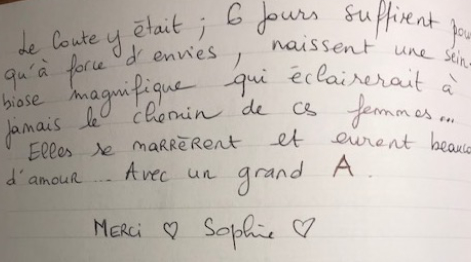 Le Conte y était ; 6 jours suffirent pou
qu'à force d'envies, naissent une sein.
biose magnifique qui éclairerait à
jamais le chemin de ces femmes...
Elles se maRRèRent et eurent beauco
d'amour... Avec un grand A.
MeRci ♡ Sophie ♡